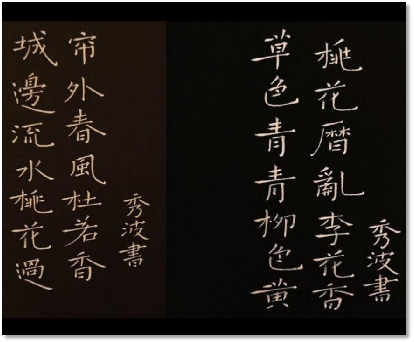 城邊流水桃花過
帘外春風杜若香
秀波書
草色青青柳色黄
桃花曆亂李花香
秀波書